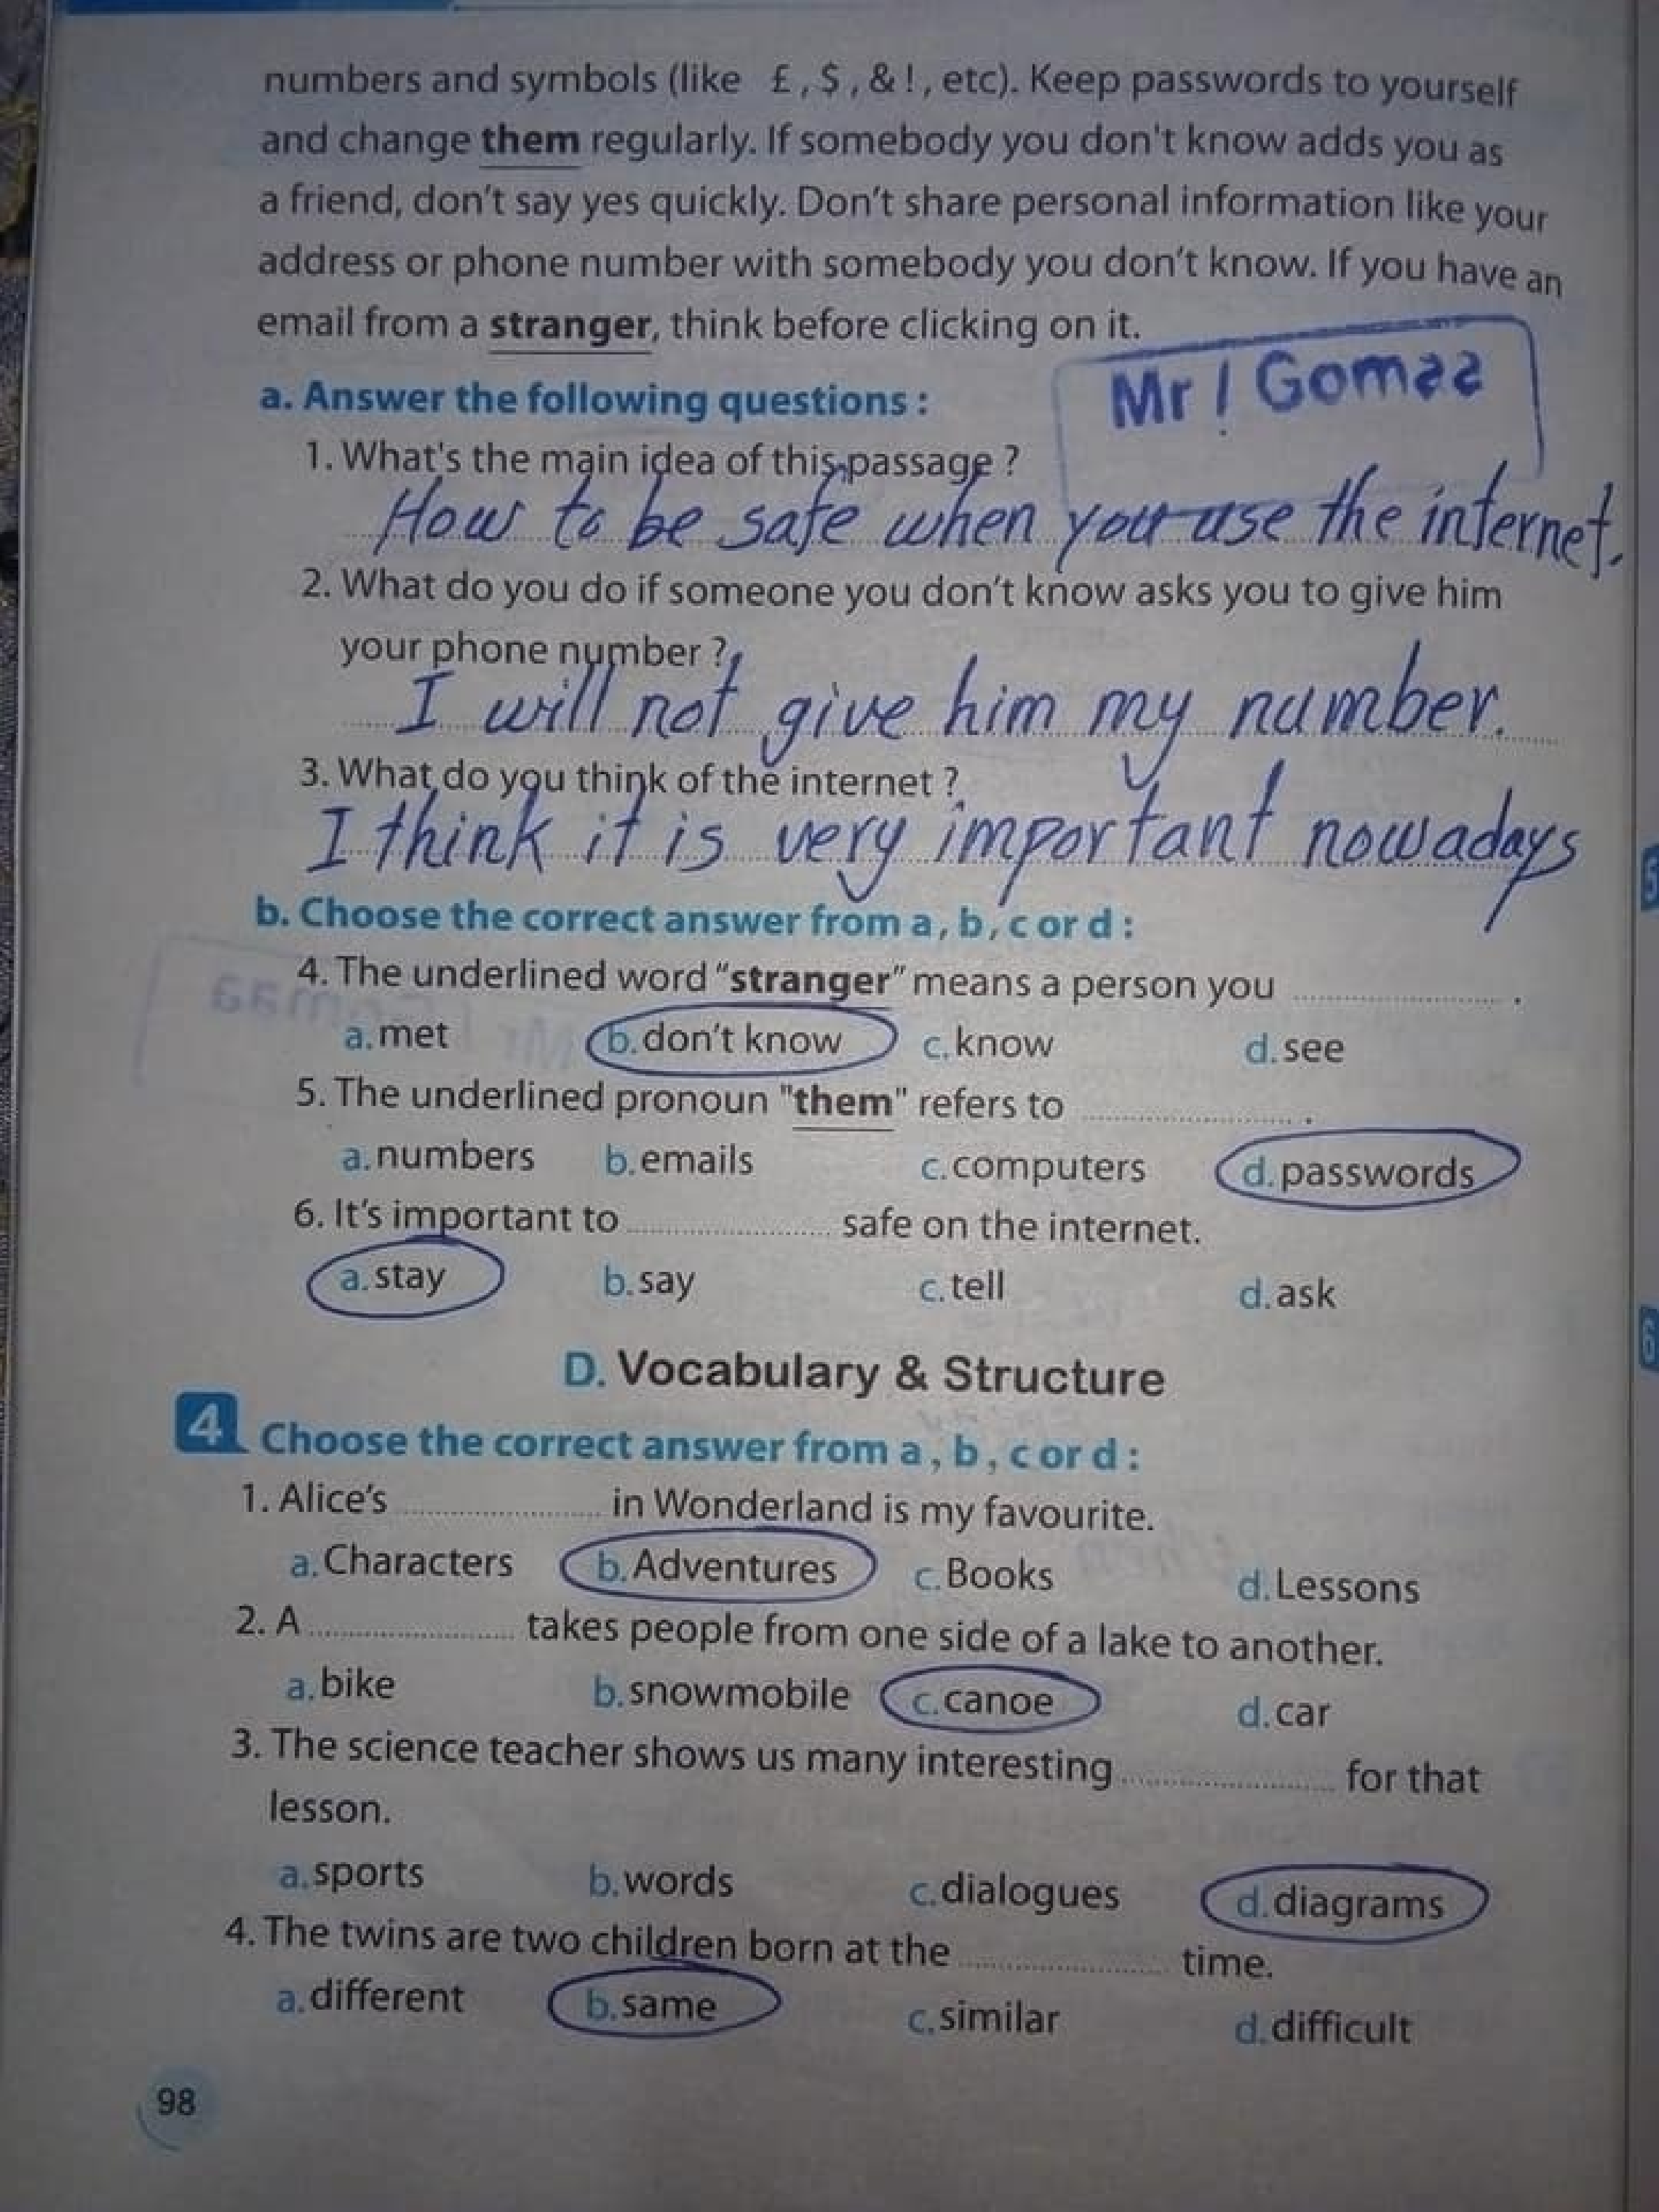 numbers and symbols (like £ , $ , & ! , etc). Keep passwords to yourself
and change them regularly. If somebody you don't know adds you as
a friend, don't say yes quickly. Don't share personal information like your
address or phone number with somebody you don't know. If you have an
email from a stranger, think before clicking on it.
Mr / Gomaa
a. Answer the following questions :
1. What's the main idea of this passage ?
How to be safe when you use the internet.
2. What do you do if someone you don't know asks you to give him
your phone number ?
I will not give him my number.
3. What do you think of the internet ?
I think it is very important nowadays
b. Choose the correct answer from a , b , c or d :
4. The underlined word "stranger" means a person you .................... .
a. met b. don't know c. know d. see
5. The underlined pronoun "them" refers to .................... .
a. numbers b. emails c. computers d. passwords
6. It's important to .................... safe on the internet.
a. stay b. say c. tell d. ask
D. Vocabulary & Structure
4 Choose the correct answer from a , b , c or d :
1. Alice's .................... in Wonderland is my favourite.
a. Characters b. Adventures c. Books d. Lessons
2. A .................... takes people from one side of a lake to another.
a. bike b. snowmobile c. canoe d. car
3. The science teacher shows us many interesting .................... for that
lesson.
a. sports b. words c. dialogues d. diagrams
4. The twins are two children born at the .................... time.
a. different b. same c. similar d. difficult
98
5
6